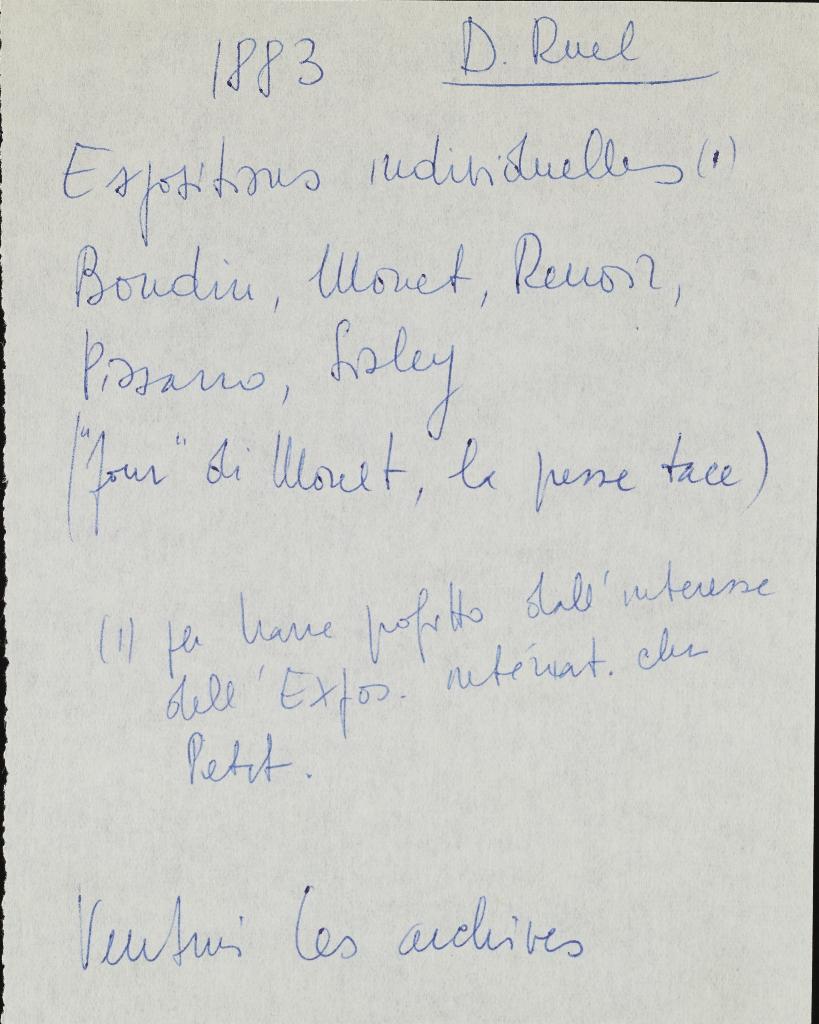 1883 D. Ruel
Expositions individuelles (1)
Boudin, Monet, Renoir,
Pissarro, Sisley
("four" di Monet, la presse tace)
(1) per trarre profitto dall'interesse
dell'Expos. internat. chez
Petit.
Venturi Les archives